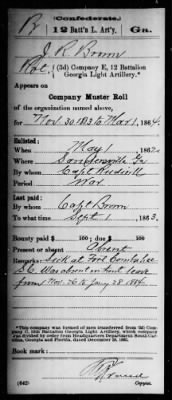 B (Confederate.)
12 Batt'n L. Art'y. Ga.
J. R. Brown
Pvt., (3d) Company E, 12 Battalion
Georgia Light Artillery.*
Appears on
Company Muster Roll
of the organization named above,
for Nov. 30 1863 to Mar 1, 1864.
Enlisted:
When May 1, 1862.
Where Sandersville Ga
By whom Capt
Period War
Last paid:
By whom Capt Brown
To what time Sept 1, 1863.
Bounty paid $ 100; due $ 100
Present or absent Absent
Remarks: Sick at Fort
S.C. Was absent on furl leave
from Nov. 26 to Jany 28 1864
*This company was formed of men transferred from (2d) Company
Book mark:
(642) Copyist.